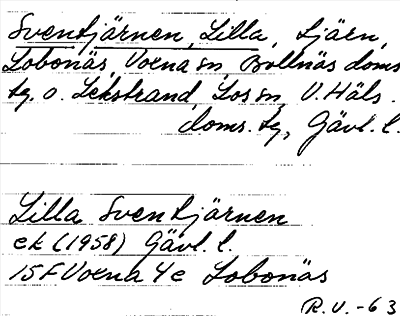 Sventjärnen, Lilla, tjärn,
Lobonäs, Voxna sn, Bollnäs doms.
tg. o. Lekstrand, Los sn, V. Häls.
doms. tg, Gävl. l.
Lilla Sventjärnen
ek (1958) Gävl. l.
15F Voxna 4e Lobonäs
R. V. -63